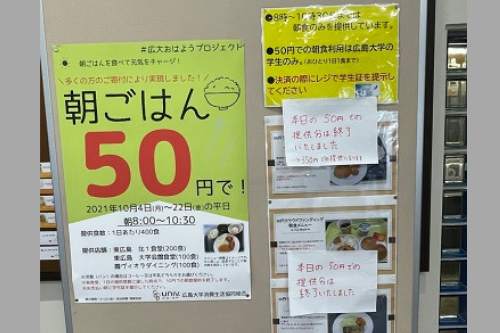 #広大おはようプロジェクト
● 朝ごはんを食べて元気をチャージ!
\多くの方のご寄付により実現しました!/
朝ごはん
50
円で!
2021年10月4日(月)~22日(金)の平日
朝8:00~10:30
提供食数:1日あたり400食
提供店舗:東広島 北1食堂(200食)
東広島 大学会館食堂(100食)
霞ヴィオラダイニング(100食)
univ. 広島大学消費生活協同組合
●8時~10時30分までは
朝食のみを提供しています。
●50円での朝食利用は広島大学の
学生のみ。(おひとり1日1食まで)
●決済の際にレジで学生証を提示し
てください
本日の 50円での
提供分は終了
いたしました
朝食メニュー
本日の 50円での
提供分は
終了いたしました